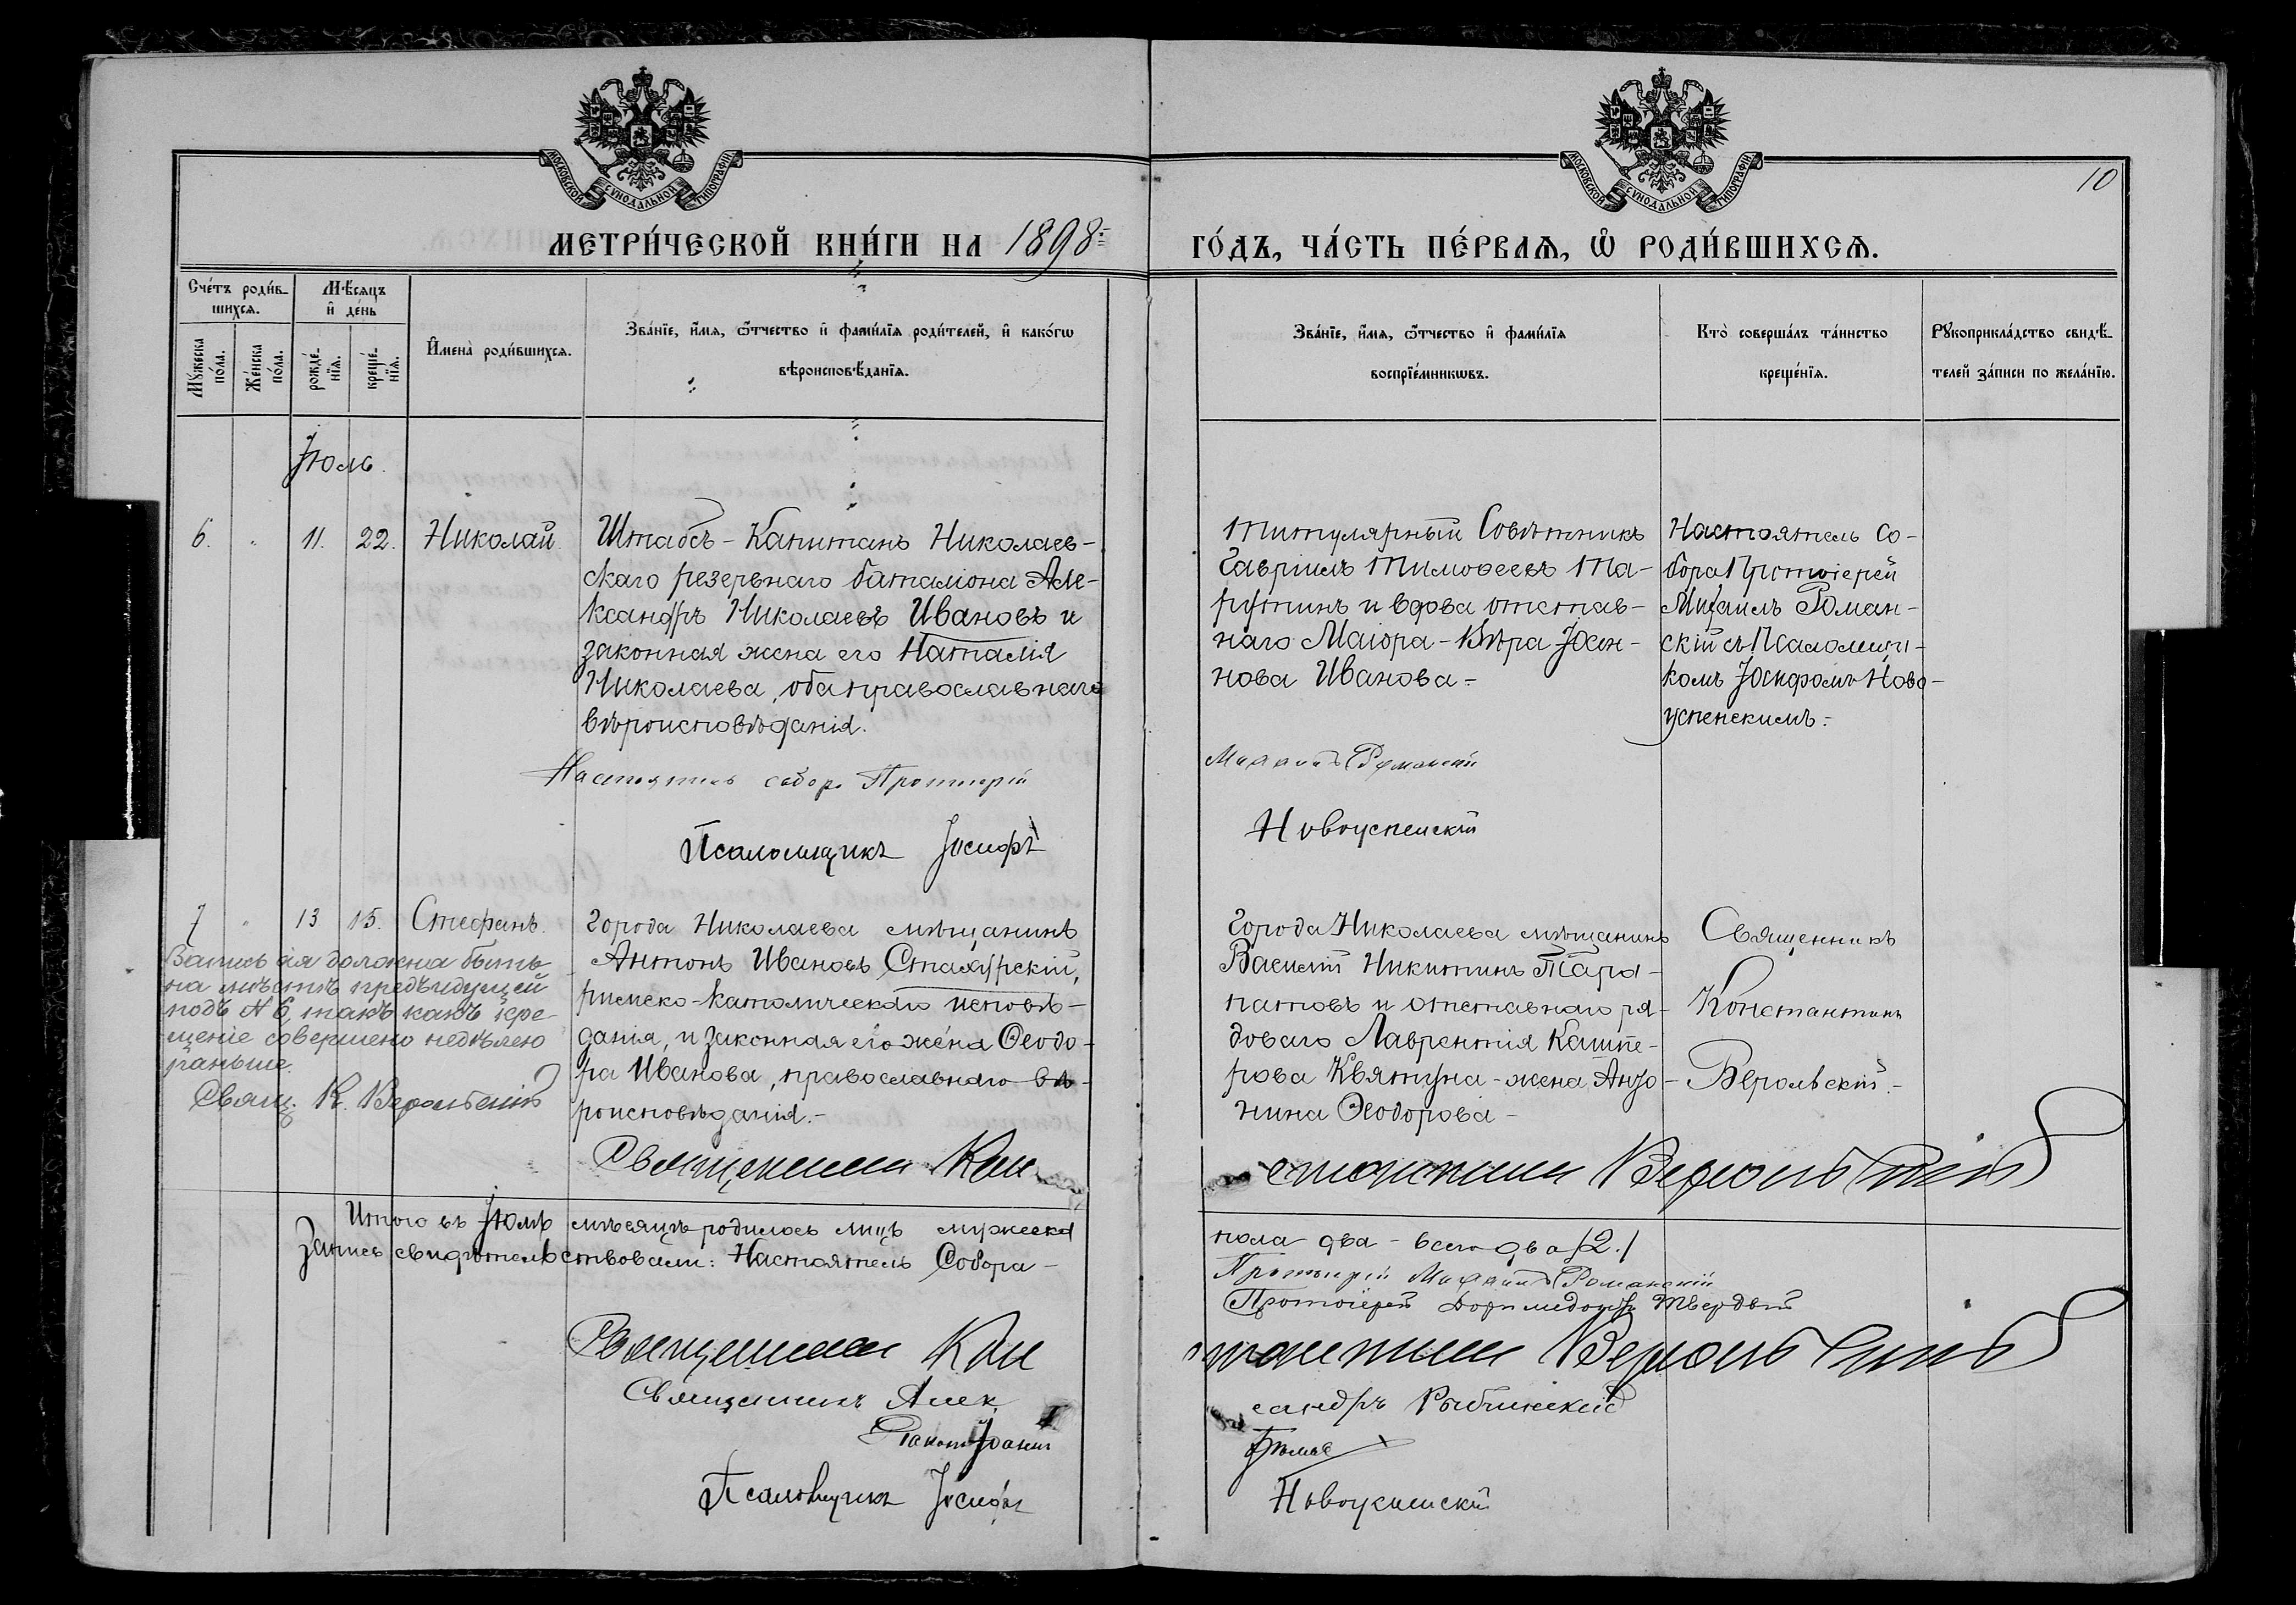 МОСКОВСКОЙ СѴНОДАЛЬНОЙ ТИПОГРАФІИ.
МОСКОВСКОЙ СѴНОДАЛЬНОЙ ТИПОГРАФІИ.
10
МЕТРИ́ЧЕСКОЙ КНИ́ГИ НА 1898
ГО́ДЪ, ЧА́СТЬ ПЕ́РВАѦ, Ѡ РОДИ́ВШИХСѦ.
Сче́тъ роди́вшихсѧ.
Мѣ́сяцъ и҆ де́нь
Мꙋ́жеска по́ла.
Же́нска по́ла.
рожде́нїѧ.
креще́нїѧ.
И҆мена̀ роди́вшихсѧ.
Зва́нїе, и҆́мѧ, ѻ҆́тчество и҆ фами́лїѧ роди́телей, и҆ како́гѡ
вѣроисповѣ́данїѧ.
Зва́нїе, и҆́мѧ, ѻ҆́тчество и҆ фами́лїѧ
воспрїе́мникѡвъ.
Кто̀ соверша́лъ та́инство
креще́нїѧ.
Рꙋкоприкла́дство свидѣ́-
телей за́писи по жела́нїю.
Іюль.
6. " 11. 22. Николай.
Штабсъ-Капитанъ Николаев-
скаго резервнаго баталіона Але-
ксандръ Николаевъ Ивановъ и
законная жена его Наталія
Николаева, оба православнаго
вѣроисповѣданія.
Титулярный Совѣтникъ
Гавріилъ Тимоѳеевъ Та-
рутинъ и вдова отстав-
наго Маіора - Вѣра
нова Иванова-
Настоятель Со-
бора Протоіерей
Михаилъ Роман-
скій съ Псаломщи-
комъ Іосифомъ Ново-
успенскимъ.-
Настоятель собора Протоіерей
Михаилъ Романскій
Псаломщикъ Іосифъ
Новоуспенскій
7 " 13 15. Стефанъ.
Города Николаева мѣщанинъ
Антонъ Ивановъ
римско-католическаго исповѣ-
данія, и законная его жена Ѳеодо-
ра Иванова, православнаго вѣ-
роисповѣданія.-
Города Николаева мѣщанинъ
Василій Никитинъ Тара-
патовъ и отставнаго ря-
доваго Лаврентія
рова Квятуна - жена,
нина Ѳеодорова-
Священникъ
Константинъ
Верольскій.-
Запись сія должна быть
на мѣстѣ предъидущей
подъ № 6, такъ какъ кре-
щеніе совершено недѣлею
раньше.
Свящ. К. Верольскій
Священникъ Кон
стантинъ Верольскій
Итого въ Іюлѣ мѣсяцѣ родилось лицъ мужеска
пола два - всего два /2./
Запись свидѣтельствовали: Настоятель Собора-
Протоіерей Михаилъ Романскій
Протоіерей Доримедонтъ Твердый
Священникъ Кон
стантинъ Верольскій
Священникъ Алек
сандръ Рыбчинскій
Іоаннъ
Псаломщикъ Іосифъ
Новоуспенскій